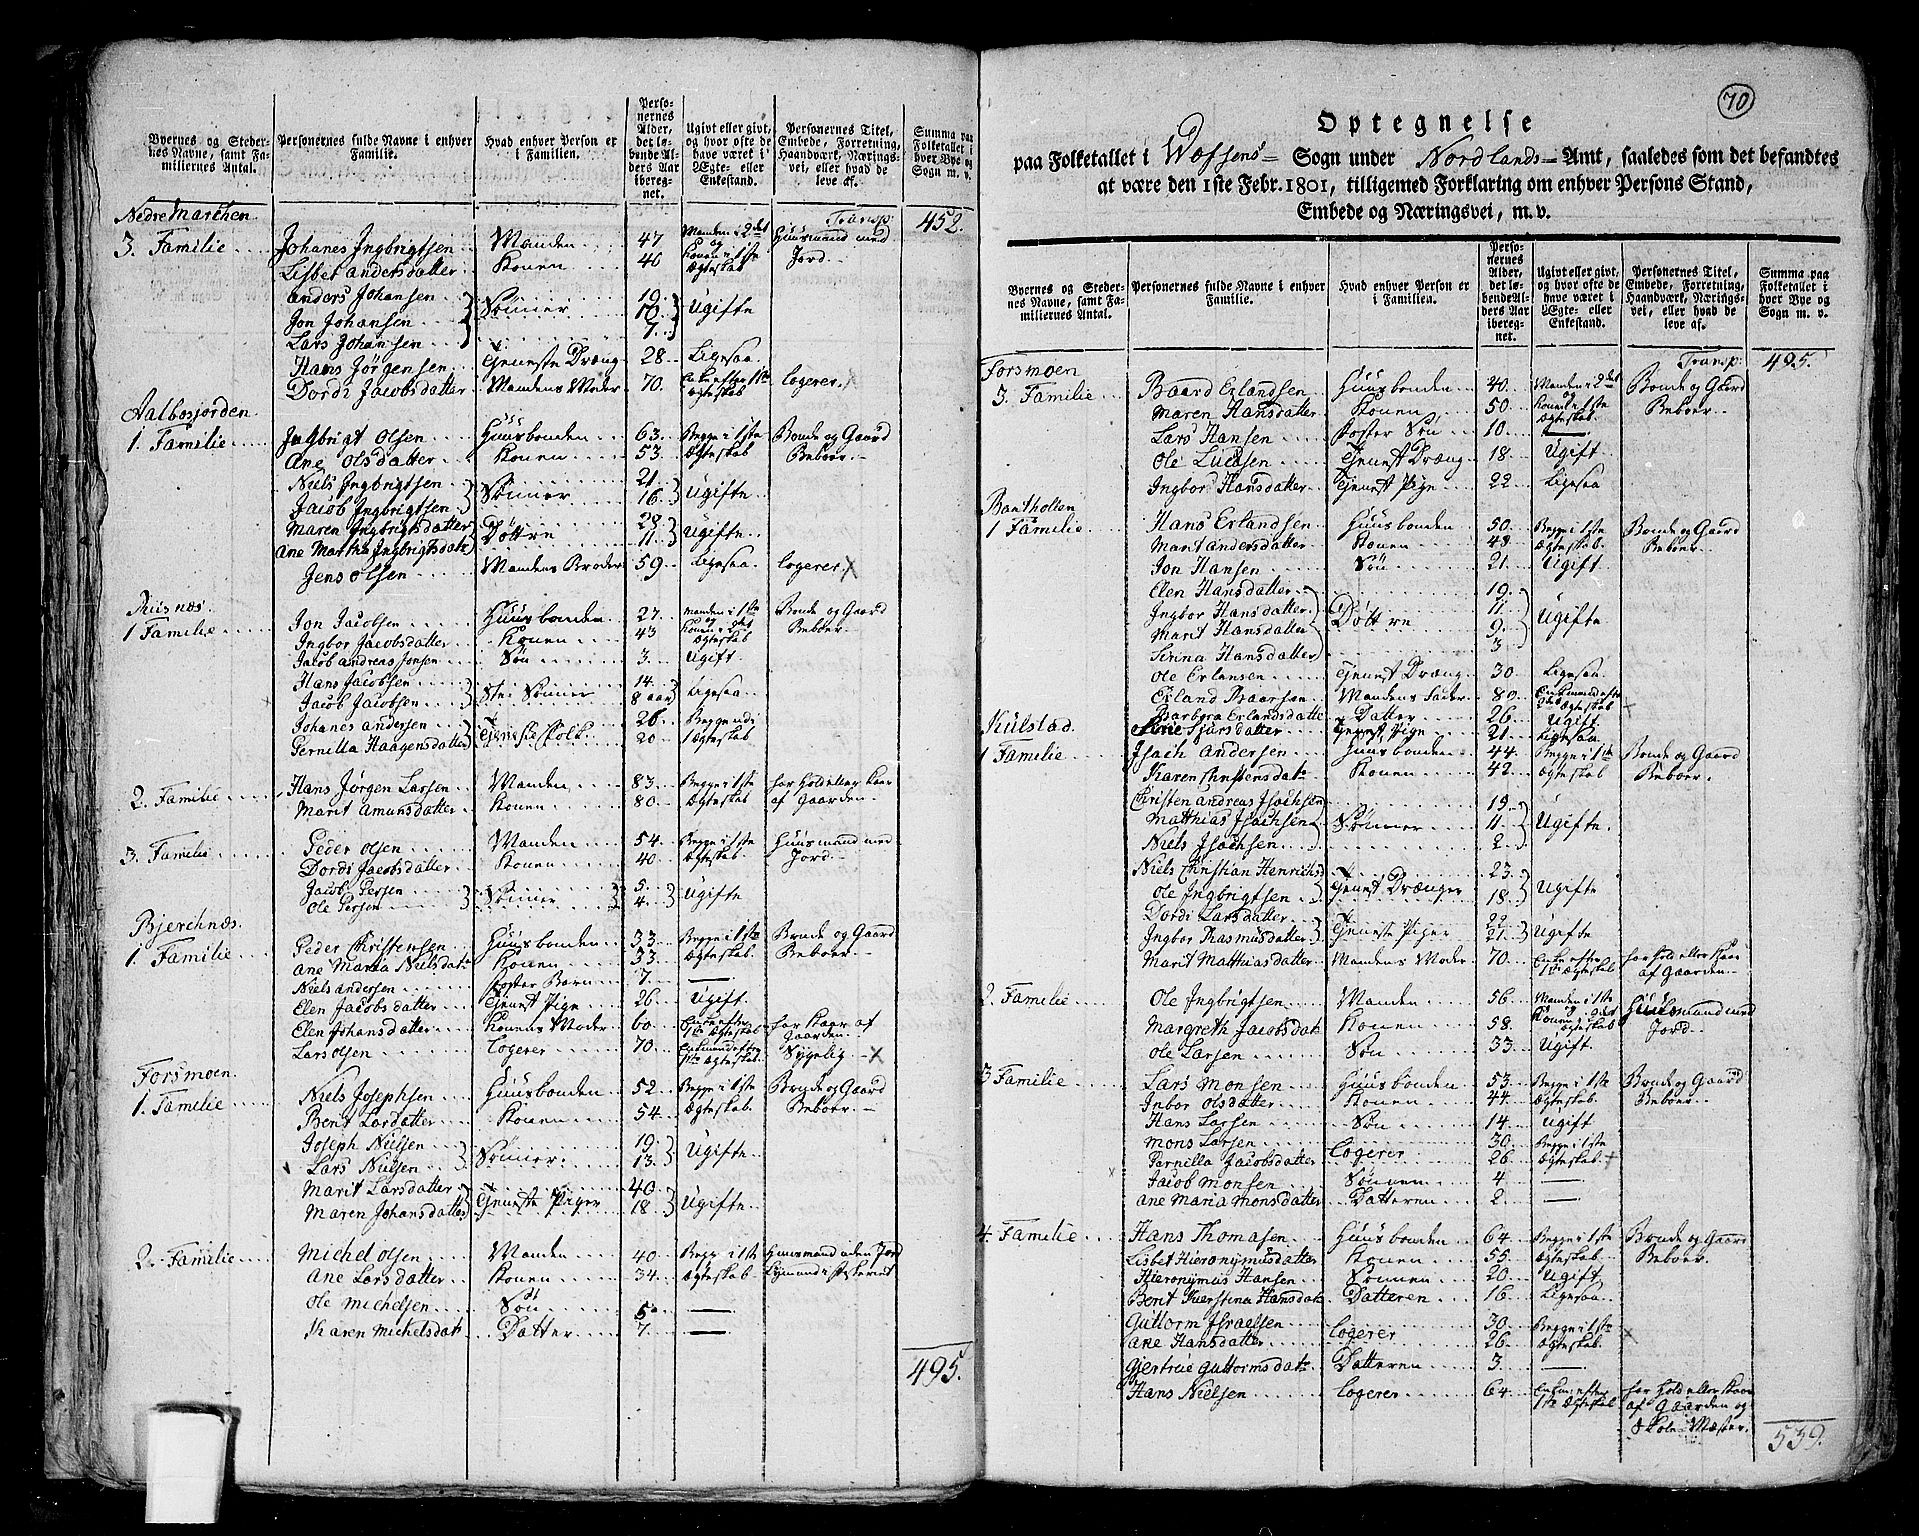 Byernes og Steder-
nes Navne, samt Fa-
miliernes Antal.
Personernes fulde Navne i enhver
Familie.
Hvad enhver Person er
i Familien.
Perso-
nernes
Alder,
det lø-
bende Al-
ders Aar
ibereg-
net.
Ugivt eller givt,
og hvor ofte de
have været i
Ægte- eller
Enkestand.
Personernes Titel,
Embede, Forretning,
Haandværk, Nærings-
vei, eller hvad de
leve af.
Summa paa
Folketallet i
hver Bye og
Sogn m. v.
Nedre Marchen Transp: 452.
3. Familie Johanes Ingbrigtsen Manden 47 Manden i 2det Huusmand med
Lisbet andersdatter Konen 46 og Konen i 1ste Ægteskab Jord
anders Johansen 19
Jon Johansen Sønner 10 Ugifte
Lars Johansen 7
Hans Jørgensen Tjeneste Dræng 28 Ligesaa
Dordi Jacobsdatter Mandens Moder 70 Enke efter 1te Ægteskab logerer
Aalbosjorden
1. Familie Ingbrigt Olsen Huusbonden 63 Begge i 1ste Bonde og Gaard
Ane Olsdatter Konen 53 Ægteskab Beboer
Niels Ingbrigtsen 21
Jacob Ingbrigtsen Sønner 16 Ugifte
Maren Ingbrigtsdatter Døttre 23 Ugifte
Ane Martha Ingbrigtsdat: 11
Jens Olsen Mandens Broder 59 Ligesaa logerer X
Rusnæs
1 Familie Jon Jacobsen Huusbonden 27 Manden i 1ste Bonde og Gaard
Ingbor Jacobsdatter Konen 43 og Konen i 2det Ægteskab Beboer
Jacob andreas Jonsen Søn 3 Ugift
Hans Jacobsen 14
Jacob Jacobsen Stif Sønner 8 aar Ligesaa
Johanes andersen Tjeneste Folk 26 Begge udi
Pernilla Haagensdatter 20 1 Ægteskab
2. Familie Hans Jørgen Larsen Manden 83 Begge i 1ste har hold eller kaar
Marit Amunsdatter Konen 80 Ægteskab af Gaarden
3. Familie Peder Olsen Manden 54 Begge i 1ste Huusmand med
Dordi Jacobsdatter Konen 40 Ægteskab Jord
Jacob Persen Sønner 5 Ugifte
Ole Persen 4
Bjerchnæs
1. Familie Peder Christensen Huusbonden 33 Begge i 1ste Bonde og Gaard
Ane Maria Nielsdat: Konen 33 Ægteskab Beboer
Niels andersen foster Barn 7
Elen Jacobsdatter Tjenest Pige 26 Ugift
Elen Johansdatter Konens Moder 60 Enke efter 1te Ægteskab har Kaar af Gaarden
Lars Olsen Logerer 70 Enkmand efter 1te Ægteskab Sygelig X
Forsmoen
1. Familie Niels Josephsen Huusbonden 52 Begge i 1ste Bonde og Gaard
Berit Larsdatter Konen 54 Ægteskab Beboer
Joseph Nielsen Sønner 19 Ugifte
Lars Nielsen 13
Marit Larsdatter Tjeneste Piger 40 Ugifte
Maren Johansdatter 18
2. Familie Michel Olsen Manden 40 Begge i 1ste Huusmand uden Jord
Ane Larsdatter Konen 34 Ægteskab
Ole Michelsen Søn 5
Karen Michelsdat: Datter 7
495.
70
Optegnelse
paa Folketallet i Wefsens Sogn under Nordlands Amt, saaledes som det befandtes
at være den 1ste Febr. 1801, tilligemed Forklaring om enhver Persons Stand,
Embede og Næringsvei, m. v.
Byernes og Steder-
nes Navne, samt Fa-
miliernes Antal.
Personernes fulde Navne i enhver
Familie.
Hvad enhver Person er
i Familien.
Perso-
nernes
Alder,
det lø-
bende Al-
ders Aar
ibereg-
net.
Ugivt eller givt,
og hvor ofte de
have været i
Ægte- eller
Enkestand.
Personernes Titel,
Embede, Forretning,
Haandværk, Nærings-
vei, eller hvad de
leve af.
Summa paa
Folketallet i
hver Bye og
Sogn m. v.
Forsmoen Transp: 495.
3. Familie Baard Erlandsen Huusbonden 40 Manden i 2det Bonde og Gaard
Maren Hansdatter Konen 50 og Konen i 1ste Ægteskab Beboer
Lars Hansen foster Søn 10
Ole Luedsen Tjenest Dræng 18 Ugift
Ingbor Hansdatter Tjenest Pige 22 Ligesaa
Bartholten
1 Familie Hans Erlandsen Huusbonden 50 Begge i 1ste Bonde og Gaard
Marit andersdatter Konen 48 Ægteskab Beboer
Jon Hansen Søn 21 Ugift
Elen Hansdatter 19
Ingbor Hansdatter Døttre 11 Ugifte
Marit Hansdatter 9
Serina Hansdatter 3
Ole Erlensen Tjenest Dræng 30 Ligesaa
Erland Baarsen Mandens Fader 80 Enkemand efter Ægteskab
Barbara Erlandsdatte Datter 26 Ugift
Kulstad Sjursdatter Tjenest Pige 21 Ligesaa
1 Familie Isach Andersen Huusbonden 44 Begge i 1ste Bonde og Gaard
Karen Christensdat: Konen 42 Ægteskab Beboer
Christen andreas Isachsen 19
Matthias Isachsen Sønner 11 Ugifte
Niels Isachsen 2
Niels Christian Henrichs Tjenest Drænger 23 Ugifte
Ole Ingbrigtsen 18
Dordi Larsdatter Tjeneste Piger 22 Ugifte
Ingbor Rasmusdatter 21
Marit Matthiasdatter Mandens Moder 70 Enke efter 1te Ægteskab har hold eller Kaar af Gaarden
2. Familie Ole Ingbrigtsen Manden 56 Manden i 1ste Huusmand med
Margreth Jacobsdat: Konen 58 og Konen i 2det Ægteskab Jord
Ole Larsen Søn 33 Ugift
3 Familie Lars Monsen Huusbonden 53 Begge i 1ste Bonde og Gaard
Inbor Olsdatter Konen 44 Ægteskab Beboer
Hans Larsen Søn 14 Ugift
Mons Larsen Logerer 30 Begge i 1ste
Pernilla Jacobsdatter 26 Ægteskab
Jacob Monsen Sønnen 4
Ane Maria Monsdatter Datteren 2
4. Familie Hans Thomasen Huusbonden 64 Begge i 1ste Bonde og Gaard
Lisbet Hieronymusdatter Konen 55 Ægteskab Beboer
Hieronymus Hansen Sønnen 20 Ugift
Berit Kierstina Hansdat: Datteren 16 Ligesaa
Guttorm Israelsen Logerer 30 Begge i 1ste
Ane Hansdatter 26 Ægteskab
Gjertrue Guttormsdat: Datteren 3
Hans Nielsen Logerer 64 Enkm: efter 1te Ægteskab har hold eller Kaar
af Gaarden og
Skole-Mæster
539.